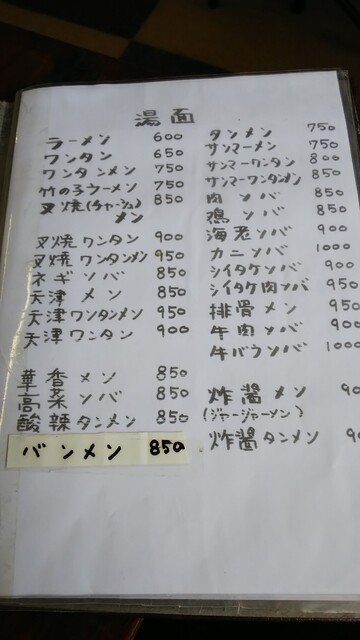 湯面
ラーメン 600
ワンタン 650
ワンタンメン 750
竹の子ラーメン 750
叉焼(チャーシュー)メン 850
叉焼ワンタン 900
叉焼ワンタンメン 950
ネギソバ 850
天津メン 850
天津ワンタンメン 950
天津ワンタン 900
華香メン 850
高菜ソバ 850
酸辣タンメン 850
バンメン 850
タンメン 750
サンマーメン 750
サンマーワンタン 800
サンマーワンタンメン 850
肉ソバ 850
鶏ソバ 850
海老ソバ 900
カニソバ 1000
シイタケソバ 900
シイタケ肉ソバ 950
排骨メン 950
牛肉ソバ 900
牛バラソバ 1000
炸醤メン 90
(ジャージャーメン)
炸醤タンメン 9